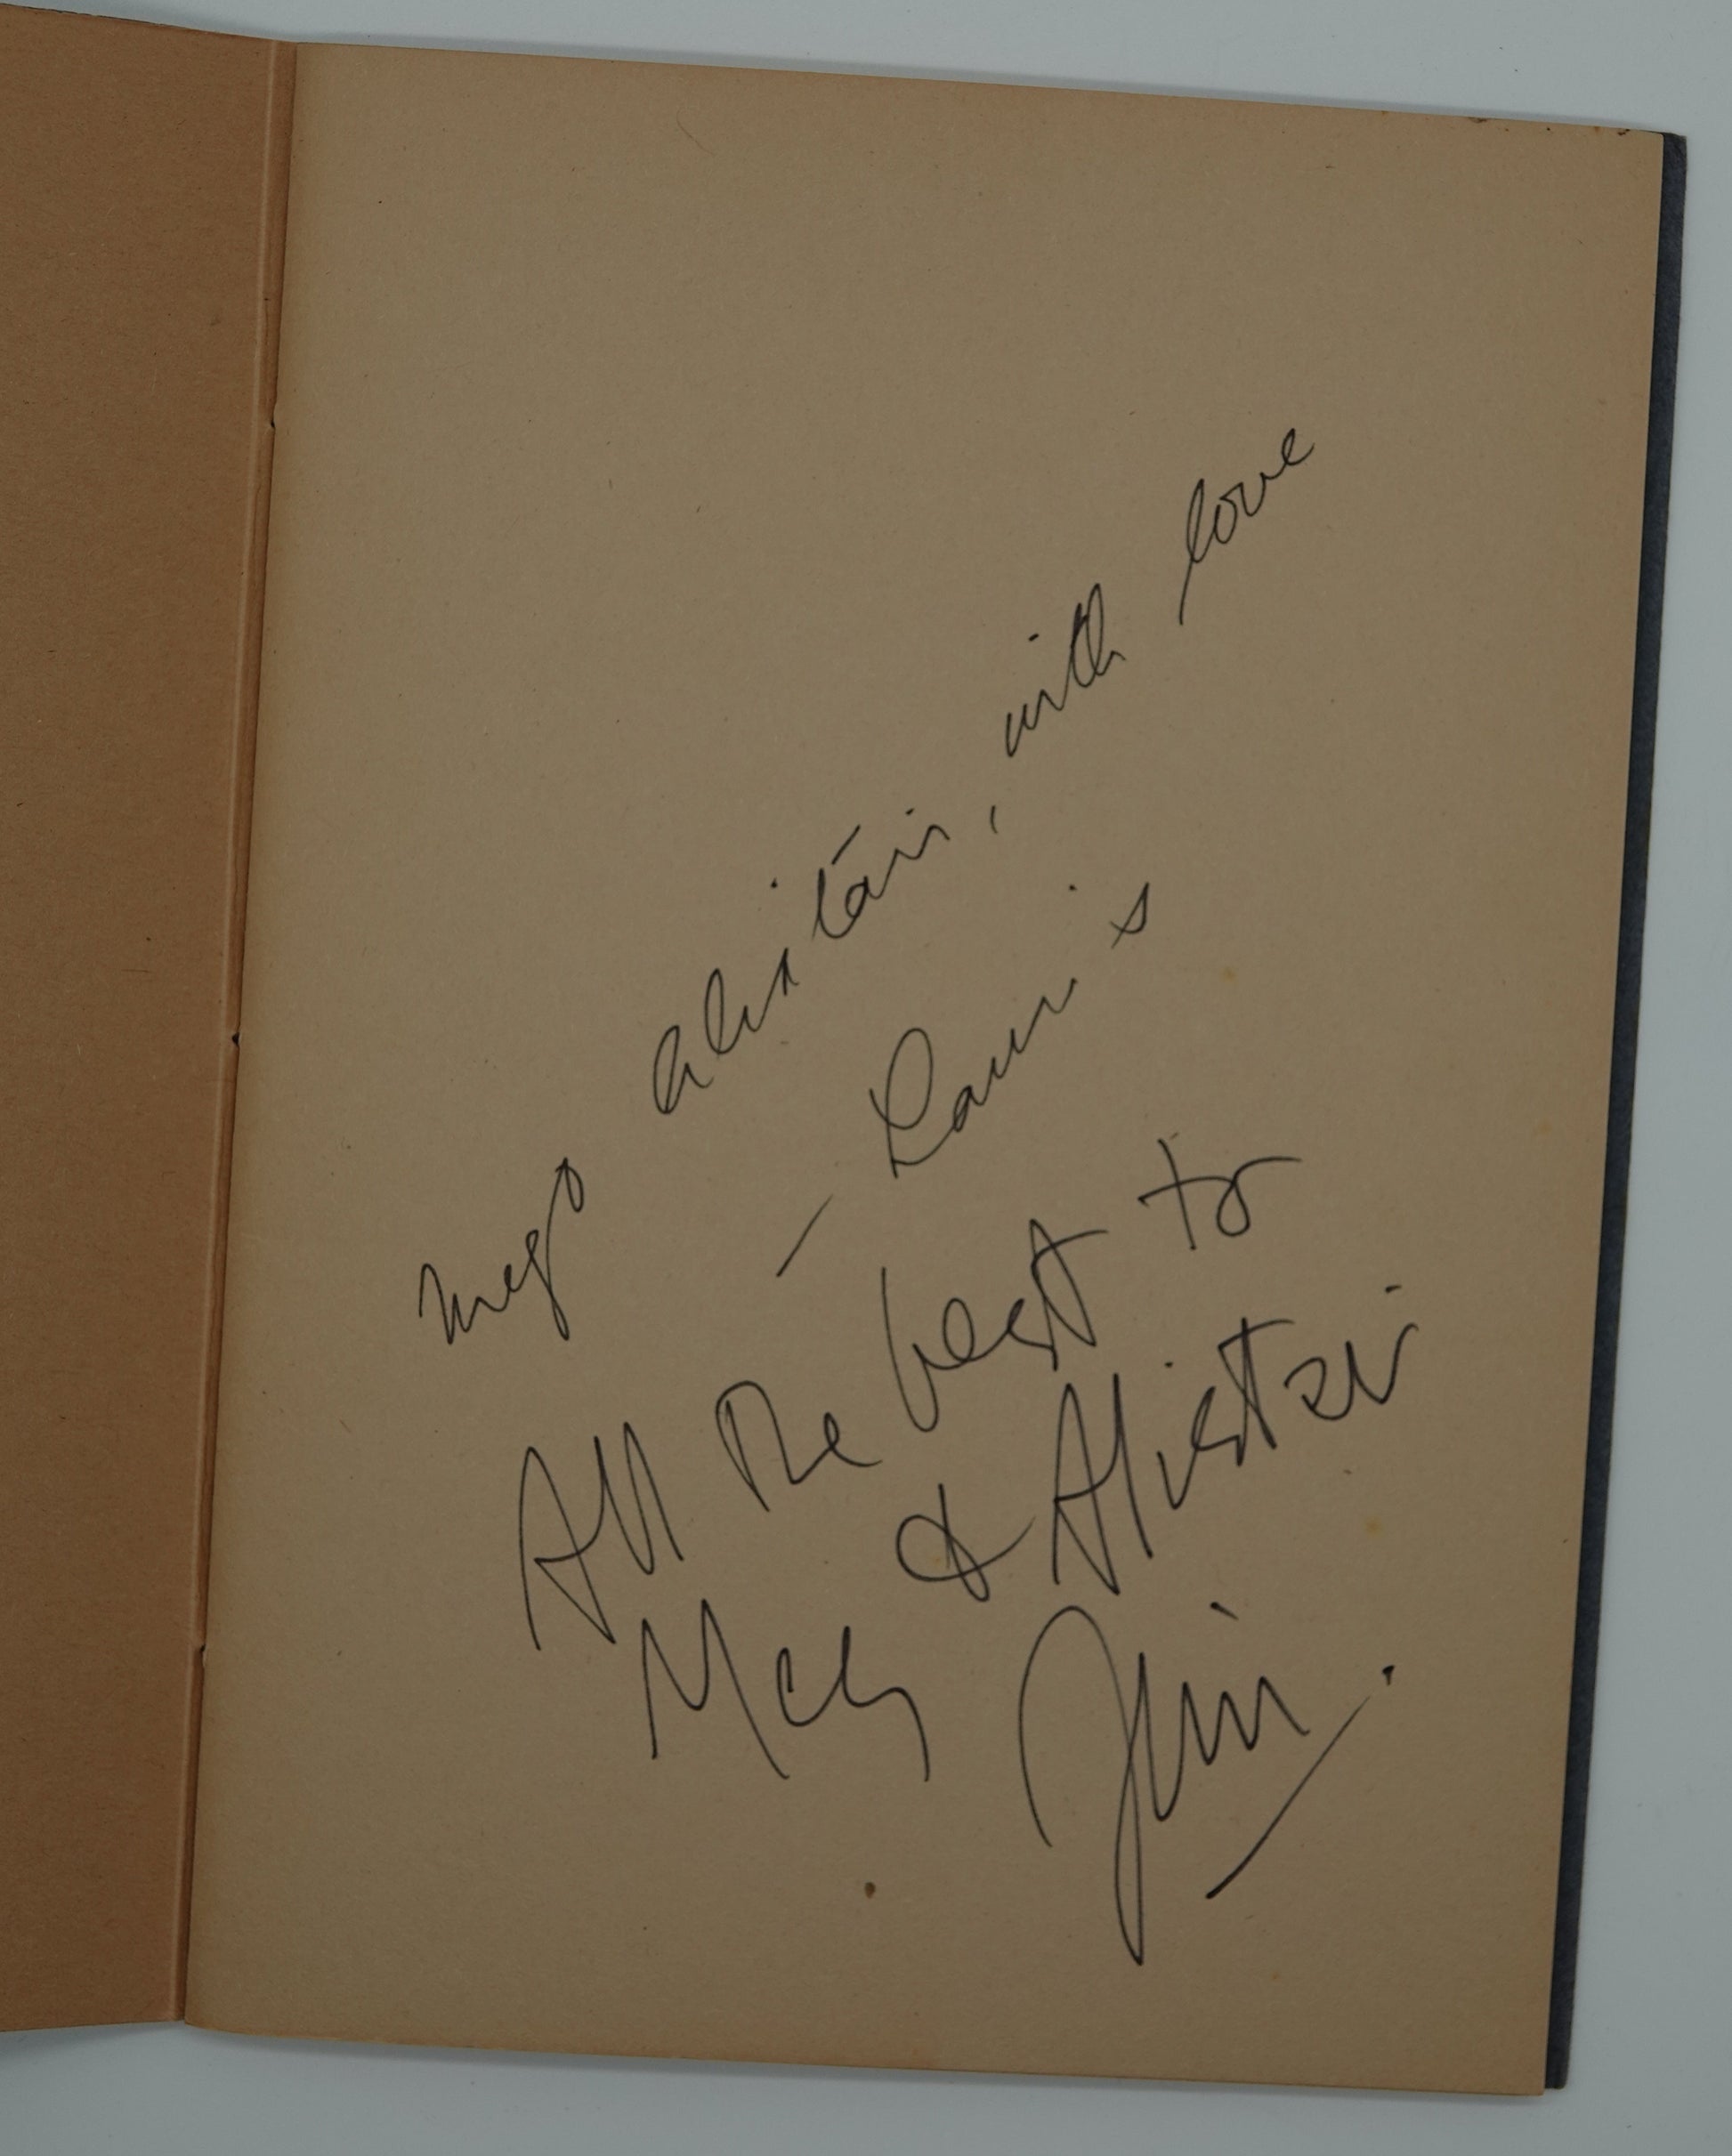 Meg & Alistair, with love
– Lauris
All the best to
Meg & Alistair
Jim.